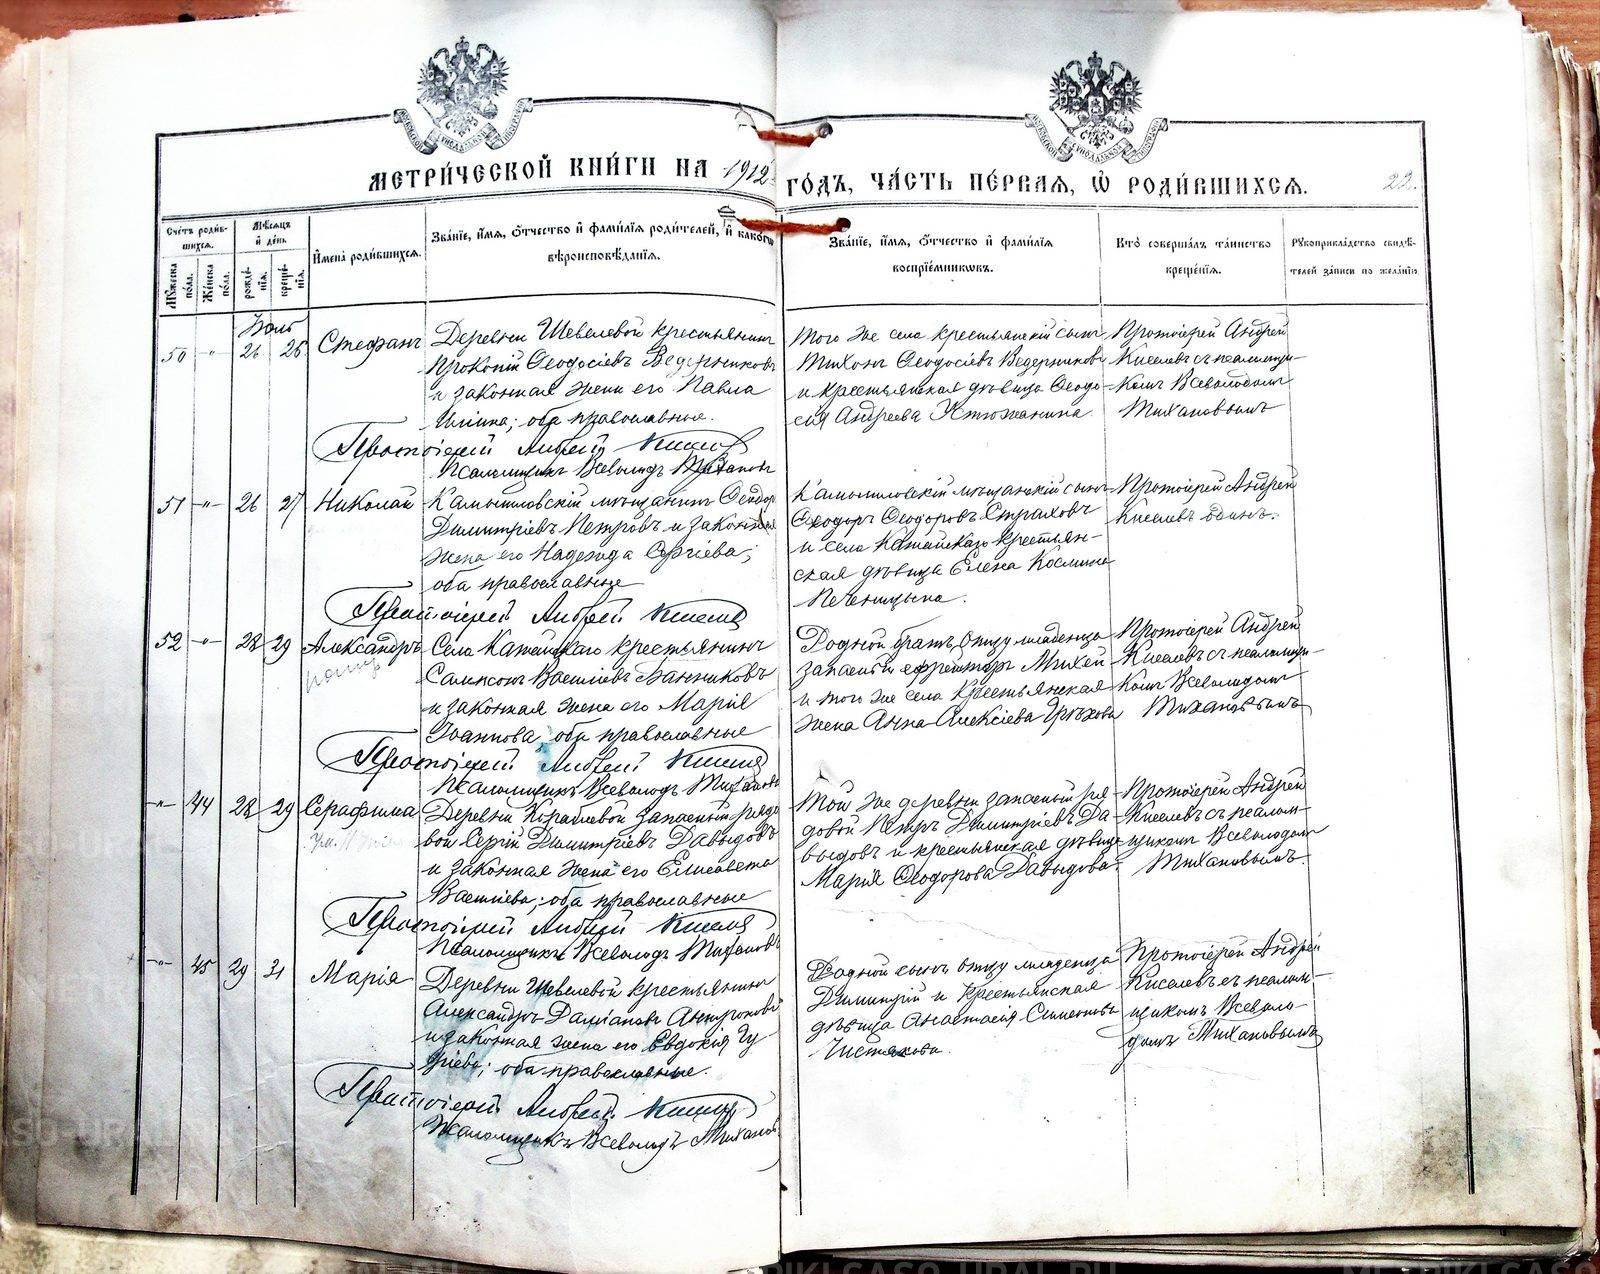 МЕТРИ́ЧЕСКОЙ КНИ́ГИ НА 1912
ГО́ДЪ, ЧА́СТЬ ПЕ́РВАЯ, Ѡ РОДИ́ВШИХСЯ.
22.
Сче́тъ роди́в-
шихся.
Му́жеска по́ла.
Же́нска по́ла.
Мѣ́сяцъ и де́нь
рожде́-нія.
креще́-нія.
Имена́ роди́вшихся.
Зва́ніе, и́мя, о́тчество и фами́лія роди́телей, и како́го
вѣроисповѣ́данія.
Зва́ніе, и́мя, о́тчество и фами́лія
воспріе́мниковъ.
Кто́ соверша́лъ та́инство
креще́нія.
Рукоприкла́дство свидѣ́-
телей за́писи по жела́нію.
Іюль
50 " 26 26 Стефанъ
Деревни Шевелевой крестьянинъ
Прокопій Ѳеодосіевъ Ведерниковъ
и законная жена его Павла
оба православные.
Протоіерей Андрей Киселевъ
Псаломщикъ Всеволодъ Тихановъ
Того же села крестьянскій сынъ
Тихонъ Ѳеодосіевъ Ведерниковъ
и крестьянская дѣвица Ѳеодо-
сія Андреева Устюжанина
Протоіерей Андрей
Киселевъ съ псаломщи-
комъ Всеволодомъ
Тихановымъ
51 " 26 27 Николай
Камышловскій мѣщанинъ Ѳеодоръ
Димитріевъ Петровъ и законная
жена его Надежда Сергіева;
оба православные
Протоіерей Андрей Киселевъ
Камышловскій мѣщанскій сынъ
Ѳеодоръ Ѳеодоровъ Страховъ
и села Катайскаго крестьян-
ская дѣвица Елена Космина
Печеницына.
Протоіерей Андрей
Киселевъ одинъ.
52 " 28 29 Александръ
Села Катайскаго крестьянинъ
Сампсонъ Василіевъ Банниковъ
и законная жена его Марія
Іоаннова; оба православные
Протоіерей Андрей Киселевъ
Псаломщикъ Всеволодъ Тихановъ
Родной братъ отцу младенца
запасный ефрейторъ Михей
и того же села крестьянская
жена Анна Алексіева Грѣхова
Протоіерей Андрей
Киселевъ съ псаломщи-
комъ Всеволодомъ
Тихановымъ
" 44 28 29 Серафима
Деревни Кораблевой запасный рядо
вой Сергій Димитріевъ Давыдовъ
и законная жена его Елисавета
Василіева; оба православные
Протоіерей Андрей Киселевъ
Псаломщикъ Всеволодъ Тихановъ
Той же деревни запасный ря-
довой Петръ Димитріевъ Да-
выдовъ и крестьянская дѣвица
Марія Ѳеодорова Давыдова.
Протоіерей Андрей
Киселевъ съ псалом-
щикомъ Всеволодомъ
Тихановымъ.
" 45 29 31 Марія
Деревни Шевелевой крестьянинъ
Александръ Даміановъ Антроповъ
и законная жена его Евдокія Гу
ріева; оба православные.
Протоіерей Андрей Киселевъ
Псаломщикъ Всеволодъ Тихановъ
Родной сынъ отцу младенца
Димитрій и крестьянская
дѣвица Анастасія Симеонова
Чистякова.
Протоіерей Андрей
Киселевъ съ псалом-
щикомъ Всеволо-
домъ Тихановымъ